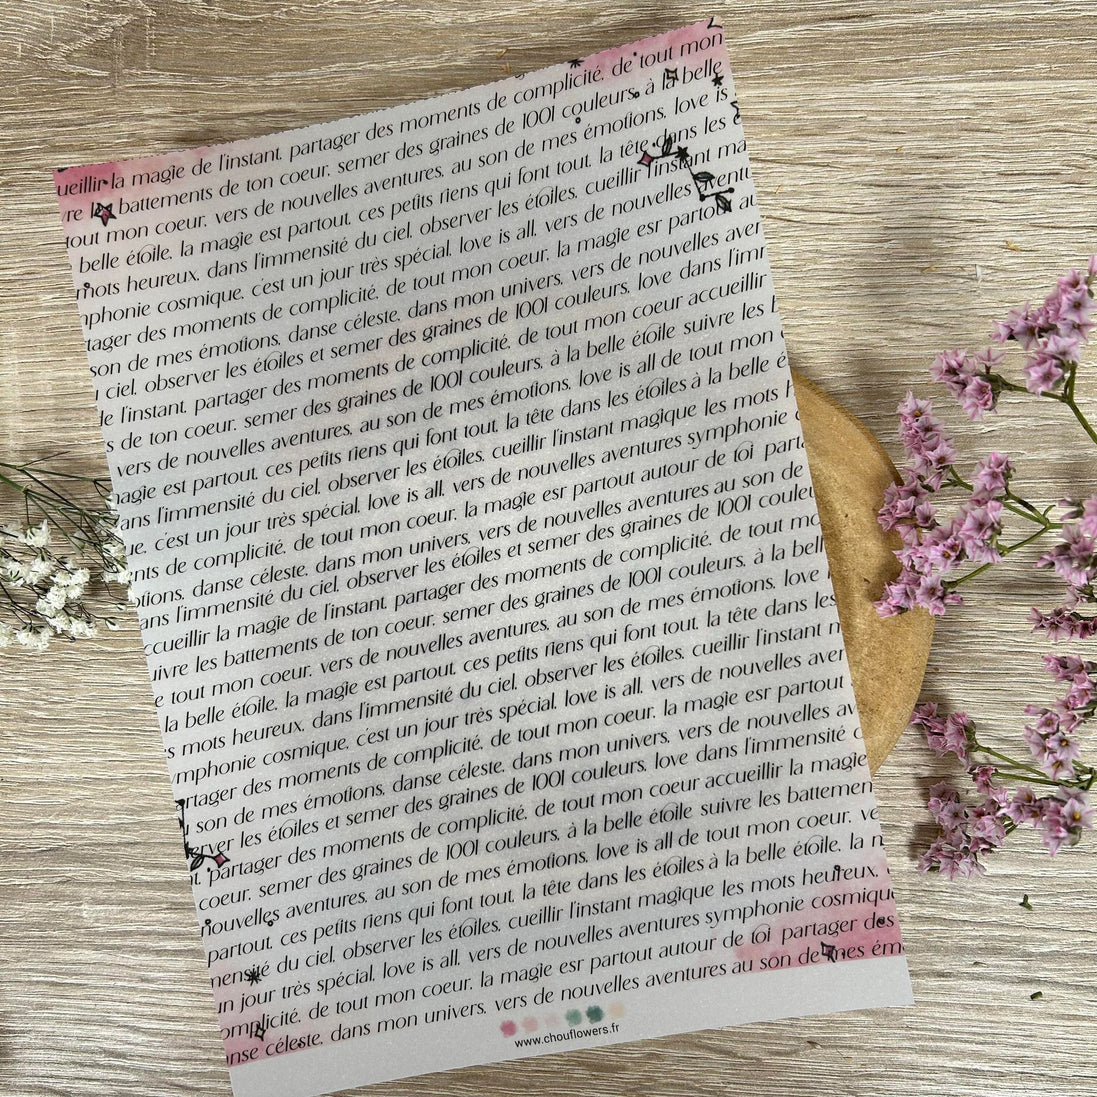 ueillir la magie de l'instant, partager des moments de complicité, de tout mon
re les battements de ton coeur, semer des graines de 1001 couleurs, à la belle
tout mon coeur, vers de nouvelles aventures, au son de mes émotions, love is
belle étoile, la magie est partout, ces petits riens qui font tout, la tête dans les
mots heureux, dans l'immensité du ciel, observer les étoiles, cueillir l'instant ma
phonie cosmique, c'est un jour très spécial, love is all, vers de nouvelles aventu
tager des moments de complicité, de tout mon coeur, la magie esr partout au
son de mes émotions, danse céleste, dans mon univers, vers de nouvelles aver
ciel, observer les étoiles et semer des graines de 1001 couleurs, love dans l'imm
le l'instant, partager des moments de complicité, de tout mon coeur accueillir
s de ton coeur, semer des graines de 1001 couleurs, à la belle étoile suivre les b
vers de nouvelles aventures, au son de mes émotions, love is all de tout mon
magie est partout, ces petits riens qui font tout, la tête dans les étoiles à la belle é
ans l'immensité du ciel, observer les étoiles, cueillir l'instant magique les mots h
ue, c'est un jour très spécial, love is all, vers de nouvelles aventures symphonie c
nts de complicité, de tout mon coeur, la magie esr partout autour de toi parta
otions, danse céleste, dans mon univers, vers de nouvelles aventures au son de
ans l'immensité du ciel, observer les étoiles et semer des graines de 1001 couleu
ccueillir la magie de l'instant, partager des moments de complicité, de tout mo
uivre les battements de ton coeur, semer des graines de 1001 couleurs, à la bell
e tout mon coeur, vers de nouvelles aventures, au son de mes émotions, love i
la belle étoile, la magie est partout, ces petits riens qui font tout, la tête dans les
s mots heureux, dans l'immensité du ciel, observer les étoiles, cueillir l'instant m
ymphonie cosmique, c'est un jour très spécial, love is all, vers de nouvelles aver
rtager des moments de complicité, de tout mon coeur, la magie esr partout
son de mes émotions, danse céleste, dans mon univers, vers de nouvelles av
erver les étoiles et semer des graines de 1001 couleurs, love dans l'immensité c
t, partager des moments de complicité, de tout mon coeur accueillir la magie
coeur, semer des graines de 1001 couleurs, à la belle étoile suivre les battemen
nouvelles aventures, au son de mes émotions, love is all de tout mon coeur, ve
partout, ces petits riens qui font tout, la tête dans les étoiles à la belle étoile, la m
mensité du ciel, observer les étoiles, cueillir l'instant magique les mots heureux,
un jour très spécial, love is all, vers de nouvelles aventures symphonie cosmique
omplicité, de tout mon coeur, la magie esr partout autour de toi partager des
anse céleste, dans mon univers, vers de nouvelles aventures au son de mes ém
www.chouflowers.fr